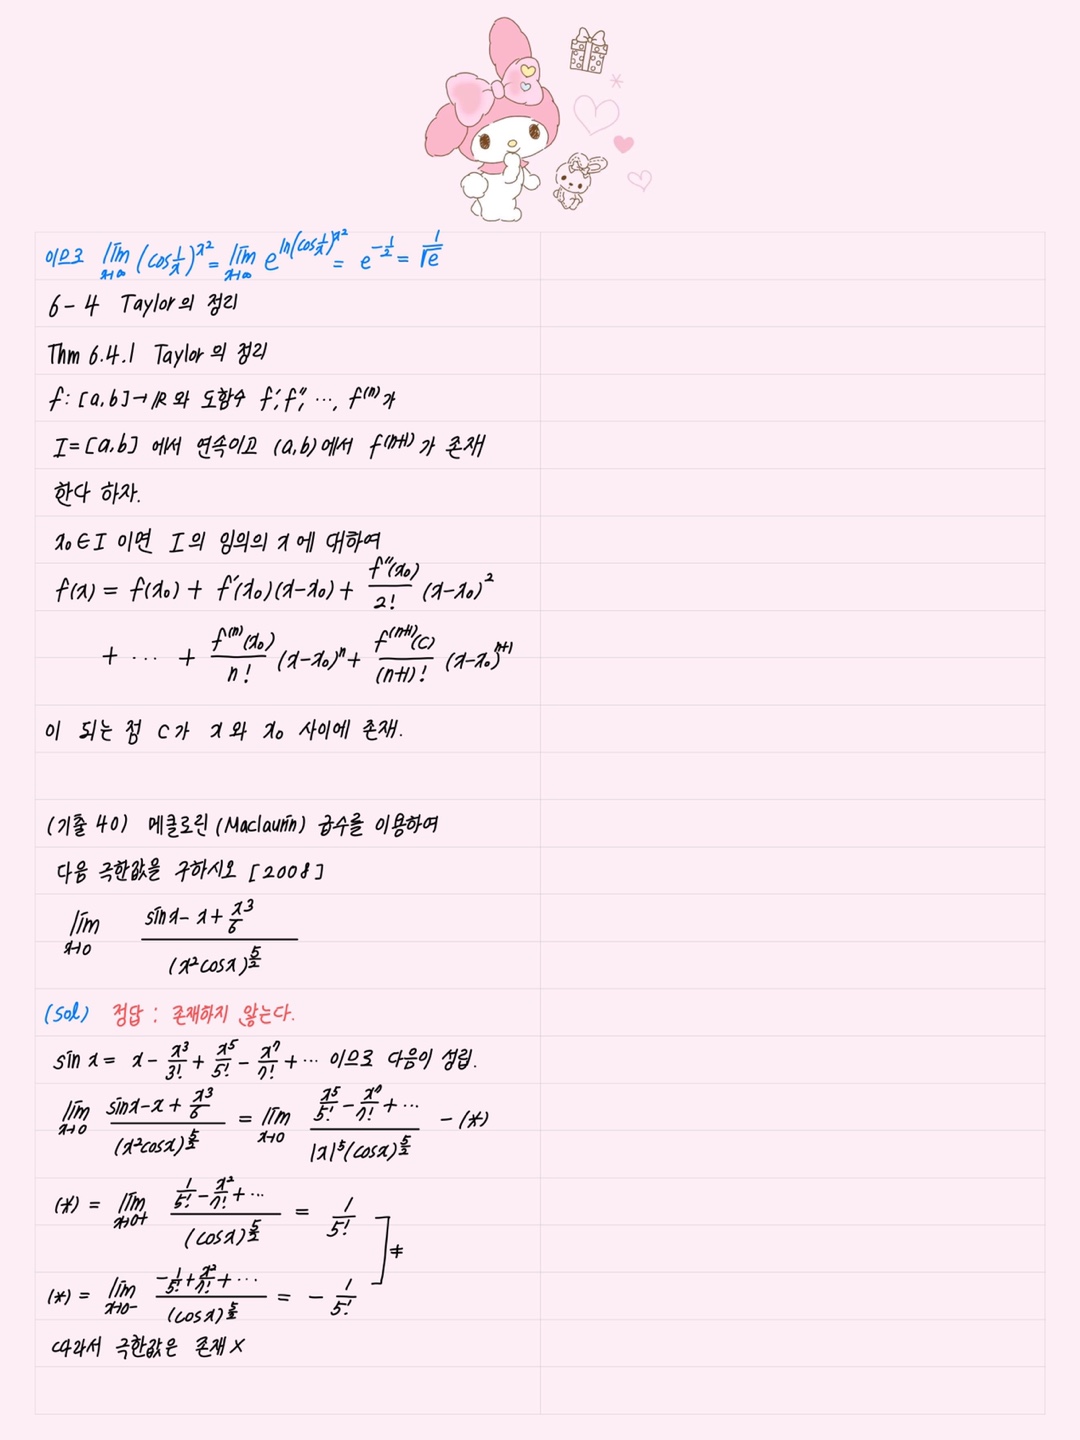 이므로 lim x→∞ (cos 1/x)^x² = lim x→∞ e^ln(cos 1/x)^x² = e^-1/2 = 1/√e
6-4 Taylor의 정리
Thm 6.4.1 Taylor의 정리
f: [a,b]→ℝ와 도함수 f', f'', …, f^(n)가
I=[a,b] 에서 연속이고 (a,b)에서 f^(n+1)가 존재
한다 하자.
x₀∈I 이면 I의 임의의 x에 대하여
f(x) = f(x₀) + f'(x₀)(x-x₀) + f''(x₀)/2! (x-x₀)²
+ … + f^(n)(x₀)/n! (x-x₀)^n + f^(n+1)(c)/(n+1)! (x-x₀)^n+1
이 되는 점 c가 x와 x₀ 사이에 존재.
(기출 40) 메클로린(Maclaurin) 급수를 이용하여
다음 극한값을 구하시오 [2008]
lim x→0 (sinx - x + x³/6)/(x²cosx)^5/2
(Sol) 정답 : 존재하지 않는다.
sin x = x - x³/3! + x⁵/5! - x⁷/7! + … 이므로 다음이 성립.
lim x→0 (sinx - x + x³/6)/(x²cosx)^5/2 = lim x→0 (x⁵/5! - x⁷/7! + …)/|x|⁵(cosx)^5/2 - (*)
(*) = lim x→0+ (1/5! - x²/7! + …)/(cosx)^5/2 = 1/5!
≠
(*) = lim x→0- (-1/5! + x²/7! + …)/(cosx)^5/2 = - 1/5!
따라서 극한값은 존재 X